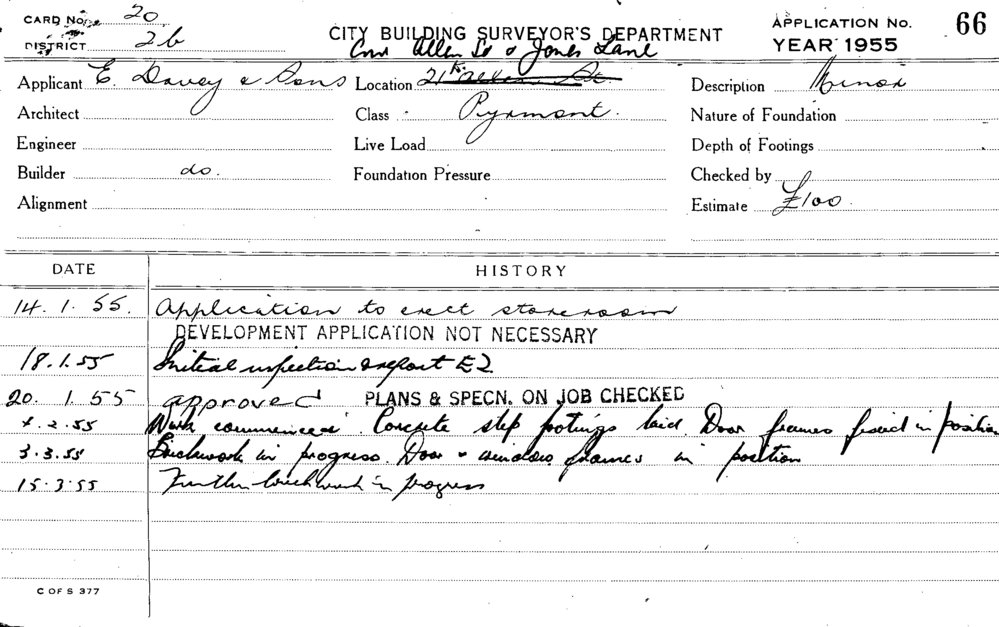 CARD No. 20
DISTRICT 2b
CITY BUILDING SURVEYOR'S DEPARTMENT
APPLICATION No. 66
YEAR 1955
Cnr Allen St & Jones Lane
Applicant E. Davey & Sons
Location 21 Allen St.
Description Minor
Architect
Class Pyrmont.
Nature of Foundation
Engineer
Live Load
Depth of Footings
Builder do.
Foundation Pressure
Checked by
Alignment
Estimate £100
DATE HISTORY
14. 1. 55. Application to erect storeroom
DEVELOPMENT APPLICATION NOT NECESSARY
18.1.55 Initial inspection & report E2
20. 1. 55 approved PLANS & SPECN. ON JOB CHECKED
.2.55 Work commenced. Concrete step footings laid. Door frames fixed in position
3.3.55 Brickwork in progress. Door & window frames in position
15.3.55 Further brickwork in progress
C OF S 377